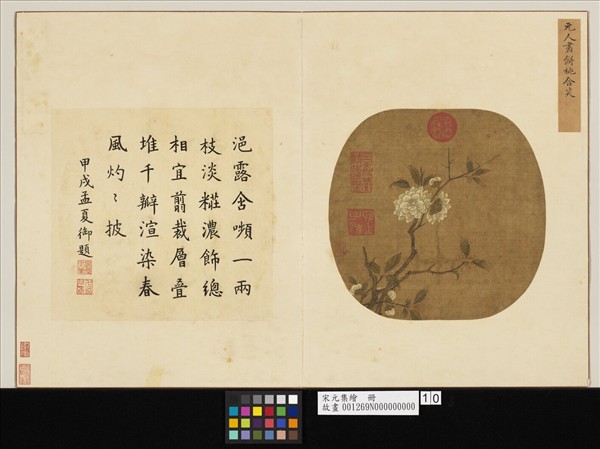 元人畫餅桃含笑
浥露含嚬一兩
枝淡糚濃飾總
相宜翦裁層疊
堆千瓣渲染春
風灼〻披
甲戌孟夏御題
宋元集繪　冊
故畫 001269N000000000
10